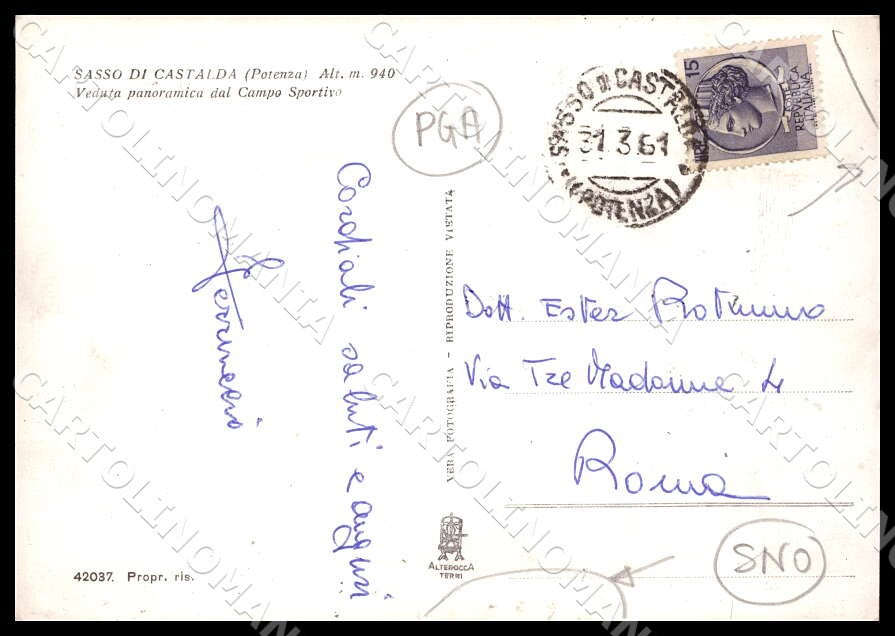 SASSO DI CASTALDA (Potenza) Alt. m. 940
Veduta panoramica dal Campo Sportivo
PGA
SASSO DI CASTALDA
31.3.61
(POTENZA)
15
REPUBBLICA
ITALIANA
Cordiali saluti e auguri
VERA FOTOGRAFIA - RIPRODUZIONE VIETATA
Dott. Ester
Via Tre Madonne 4
Roma
ALTEROCCA
TERNI
SNO
42037. Propr. ris.
CARTOLINOMANIA